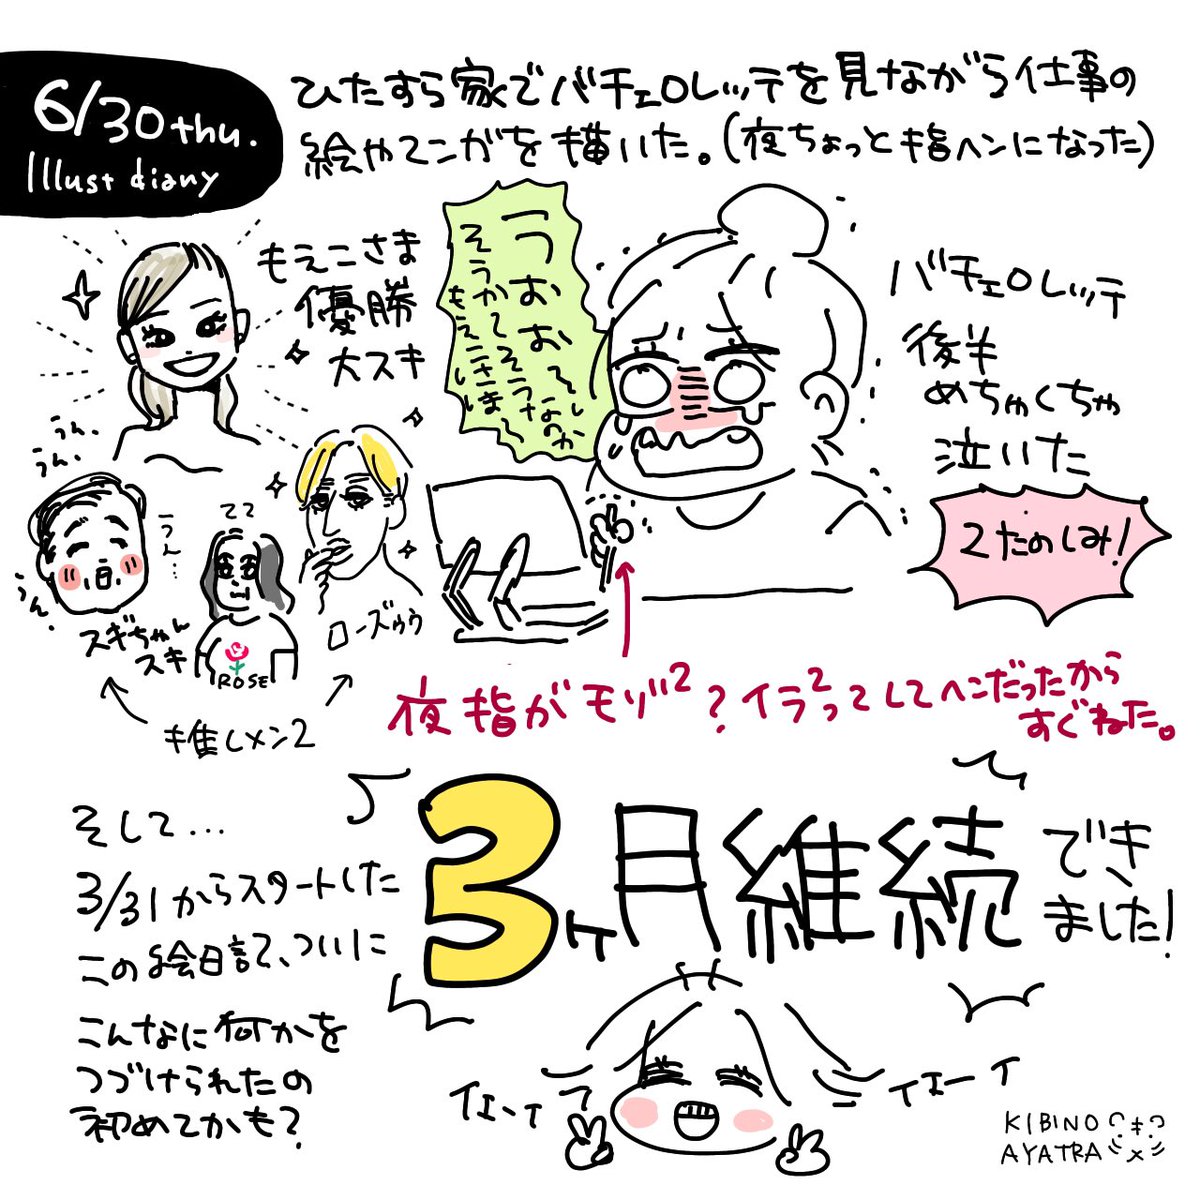 6/30 thu.
Illust diary
ひたすら家でバチェロレッテを見ながら仕事の
絵やマンガを描いた。(夜ちょっと指ヘンになった)
もえこさま
優勝
大スキ
うおお〜
そうかてそうなのか
もえこさま〜
バチェロレッテ
後半
めちゃくちゃ
泣いた
2たのしみ!
うん、
うん、
うん…
うん、
スギちゃん
スキ
てて
ROSE
ローズゥゥ
推しメン2
夜指がモゾ2?イラ2ってしてヘンだったから
すぐねた。
そして…
3/31からスタートした
この絵日記、ついに
こんなに何かを
つづけられたの
初めてかも?
3ヶ月継続できました!
イエーイ
イエーイ
KIBINO
AYATRA